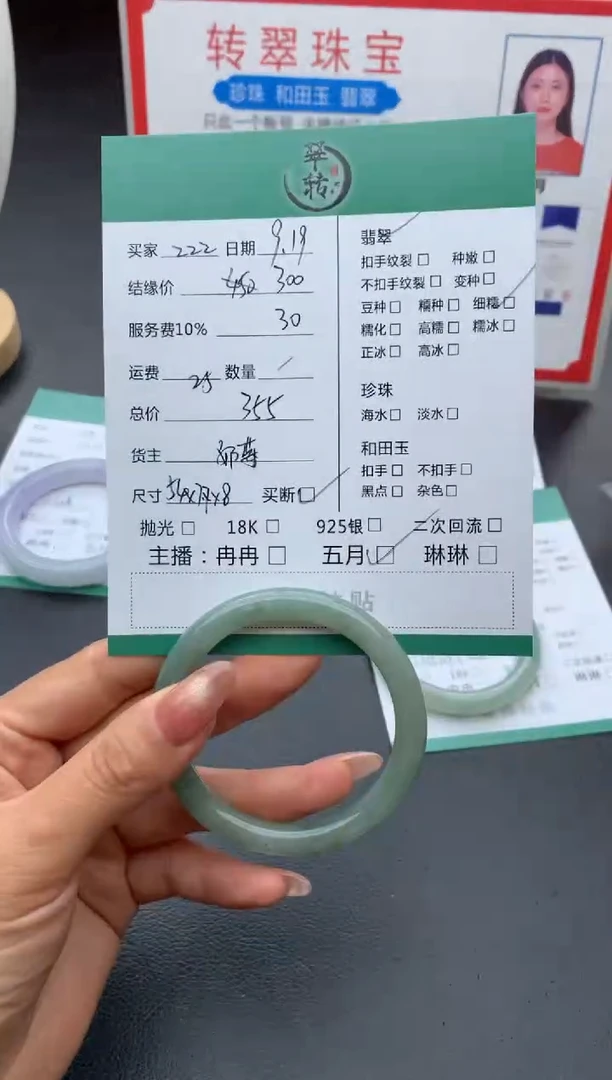 转翠珠宝
珍珠 和田玉 翡翠
翠转
买家 222 日期 9.19
结缘价 450 300
服务费10% 30
运费 25 数量
总价 355
货主
尺寸 买断☐
翡翠
扣手纹裂☐ 种嫩☐
不扣手纹裂☐ 变种☐
豆种☐ 糯种☐ 细糯☐
糯化☐ 高糯☐ 糯冰☐
正冰☐ 高冰☐
珍珠
海水☐ 淡水☐
和田玉
扣手☐ 不扣手☐
黑点☐ 杂色☐
抛光☐ 18K☐ 925银☐ 二次回流☐
主播：冉冉☐ 五月☐ 琳琳☐
贴